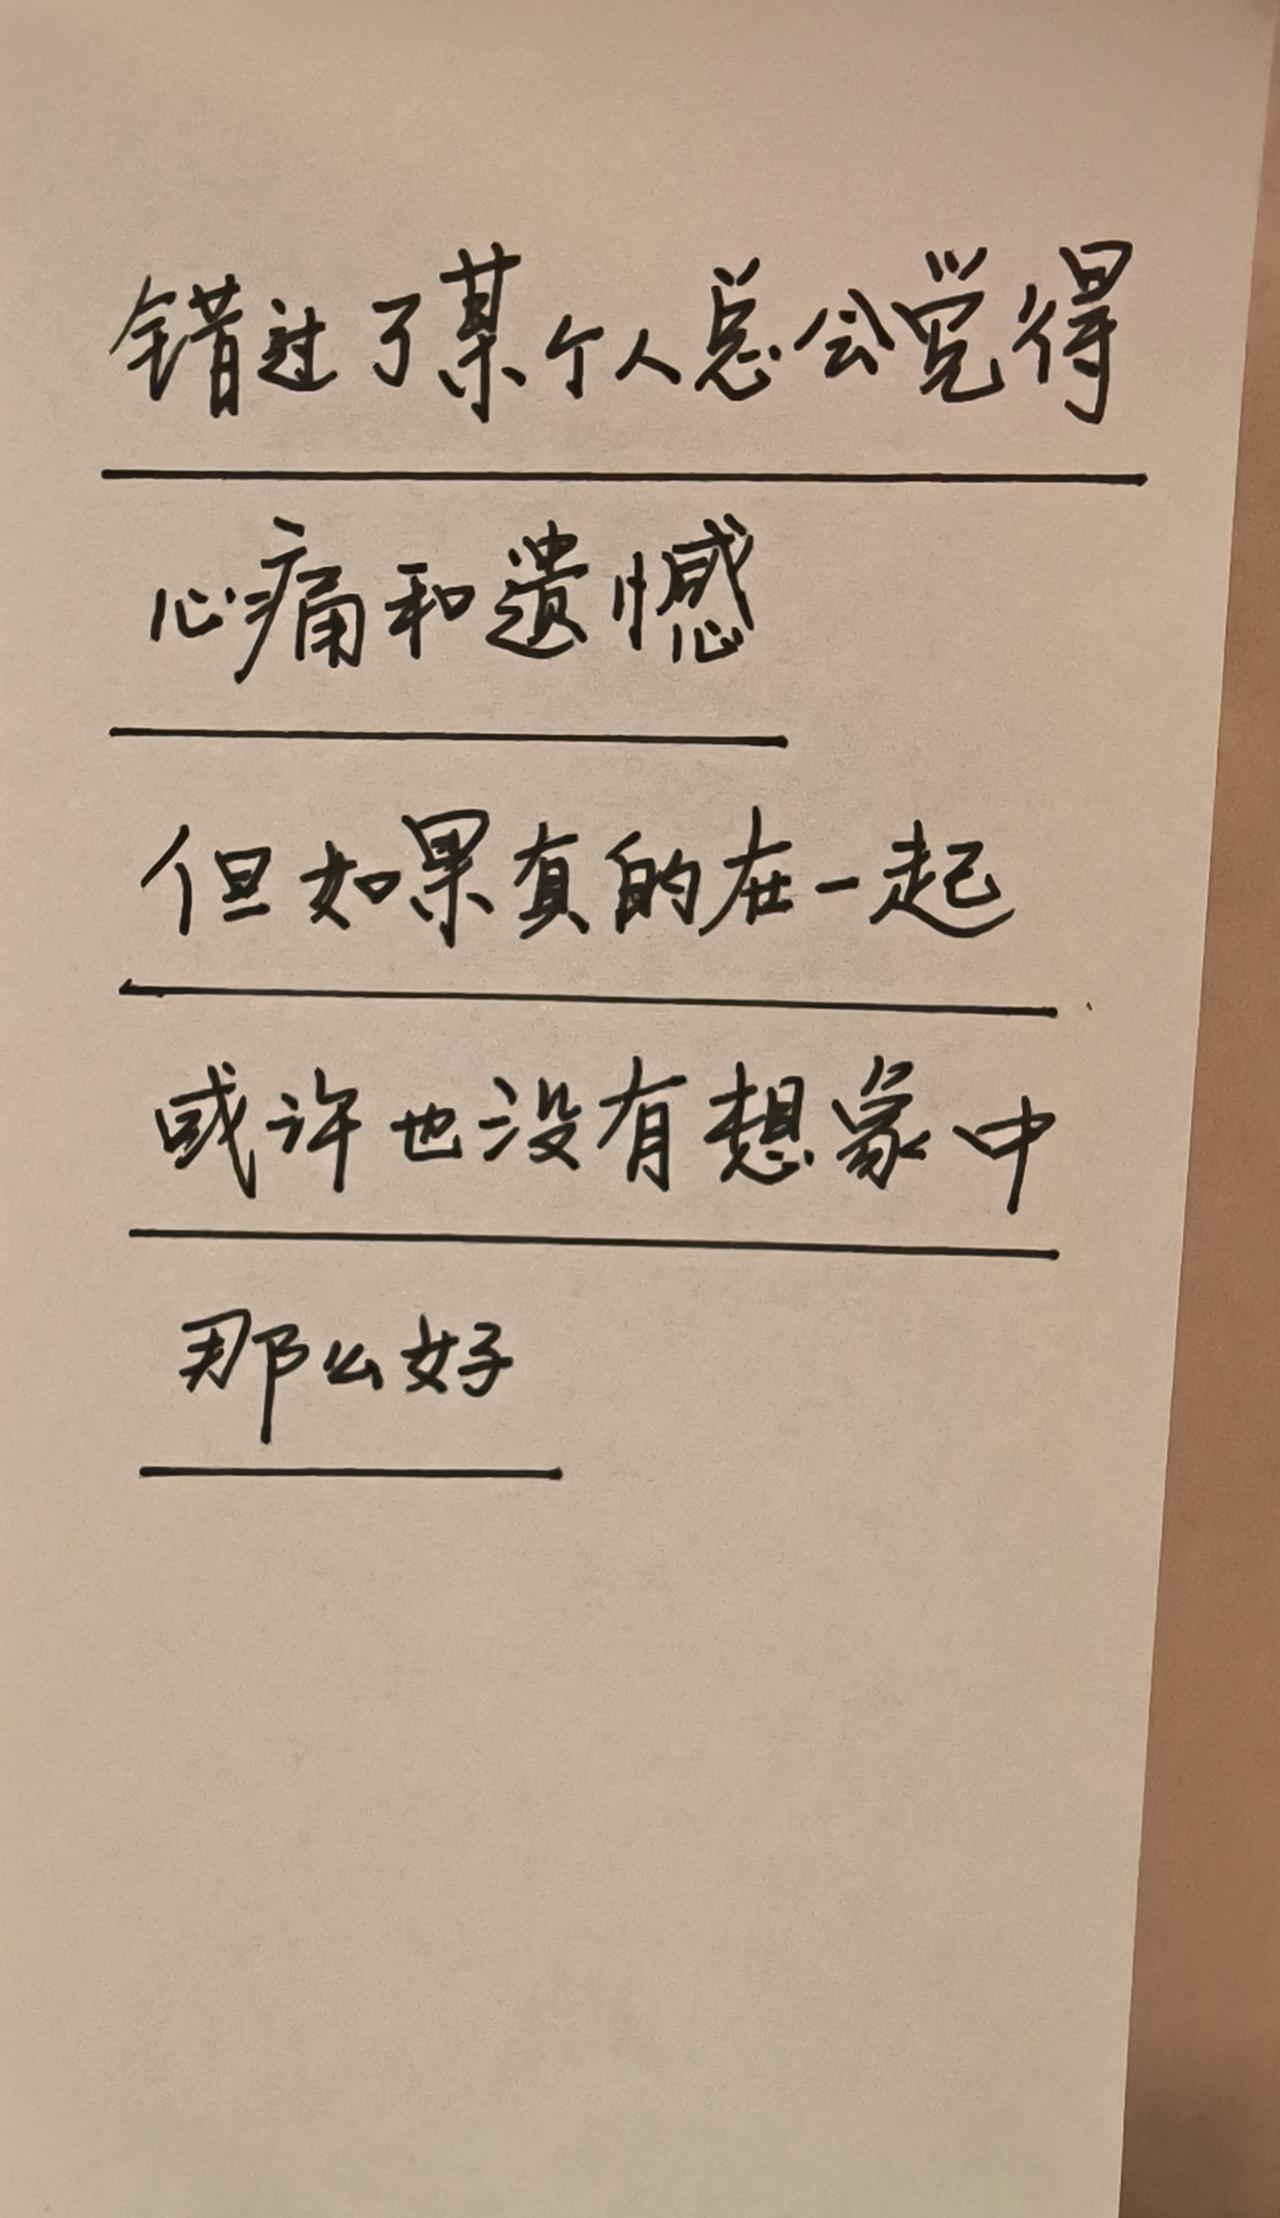 错过了某个人总会觉得
心痛和遗憾
但如果真的在一起
或许也没有想象中
那么好